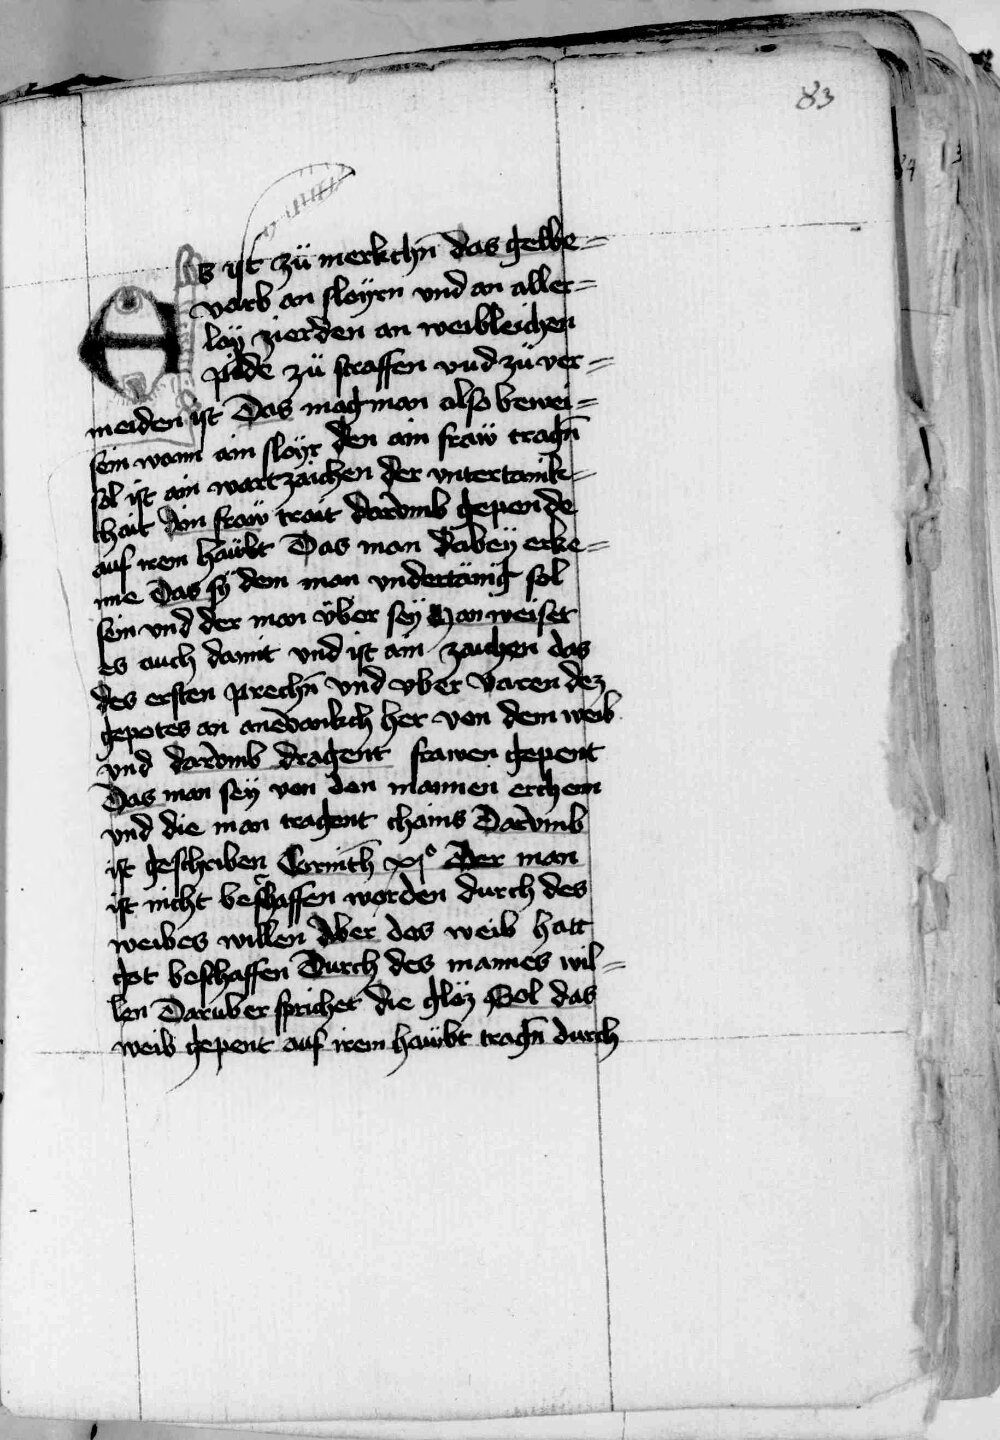 83
Es ist zü merkchn̄ das gelbe=
varb an sloyrn vnd an aller=
loy zierden an weibleichen
pilde zü straffen vnd zü ver=
meiden ist Das mag man also bewei=
sein wann ain sloyr den ain fraw tragn̄
sol ist ain wartzaichen der vntertanik=
chait Ain fraw trait darvmb gepende
auf irem haübt Das man dabey erke=
nne Das sy dem man vndertänig sol
sein vnd der man über sey Man weiset
es auch damit vnd ist ain zaichen das
des ersten prechn̄ vnd vber varen dez
gepotes an anevankch her von dem weib
vnd darvmb dragent frawen gepent
Das man sey von den mannen erchenn
vnd die man tragent chains Darvmb
ist geschriben Corinth xjº Der man
ist nicht beschaffen worden durch des
weibes willen Aber das weib hatt
got beschaffen Durch des mannes wil=
len Daruber sprichet die gloz Sol das
weib gepent auf irem haübt tragn̄ durch
84